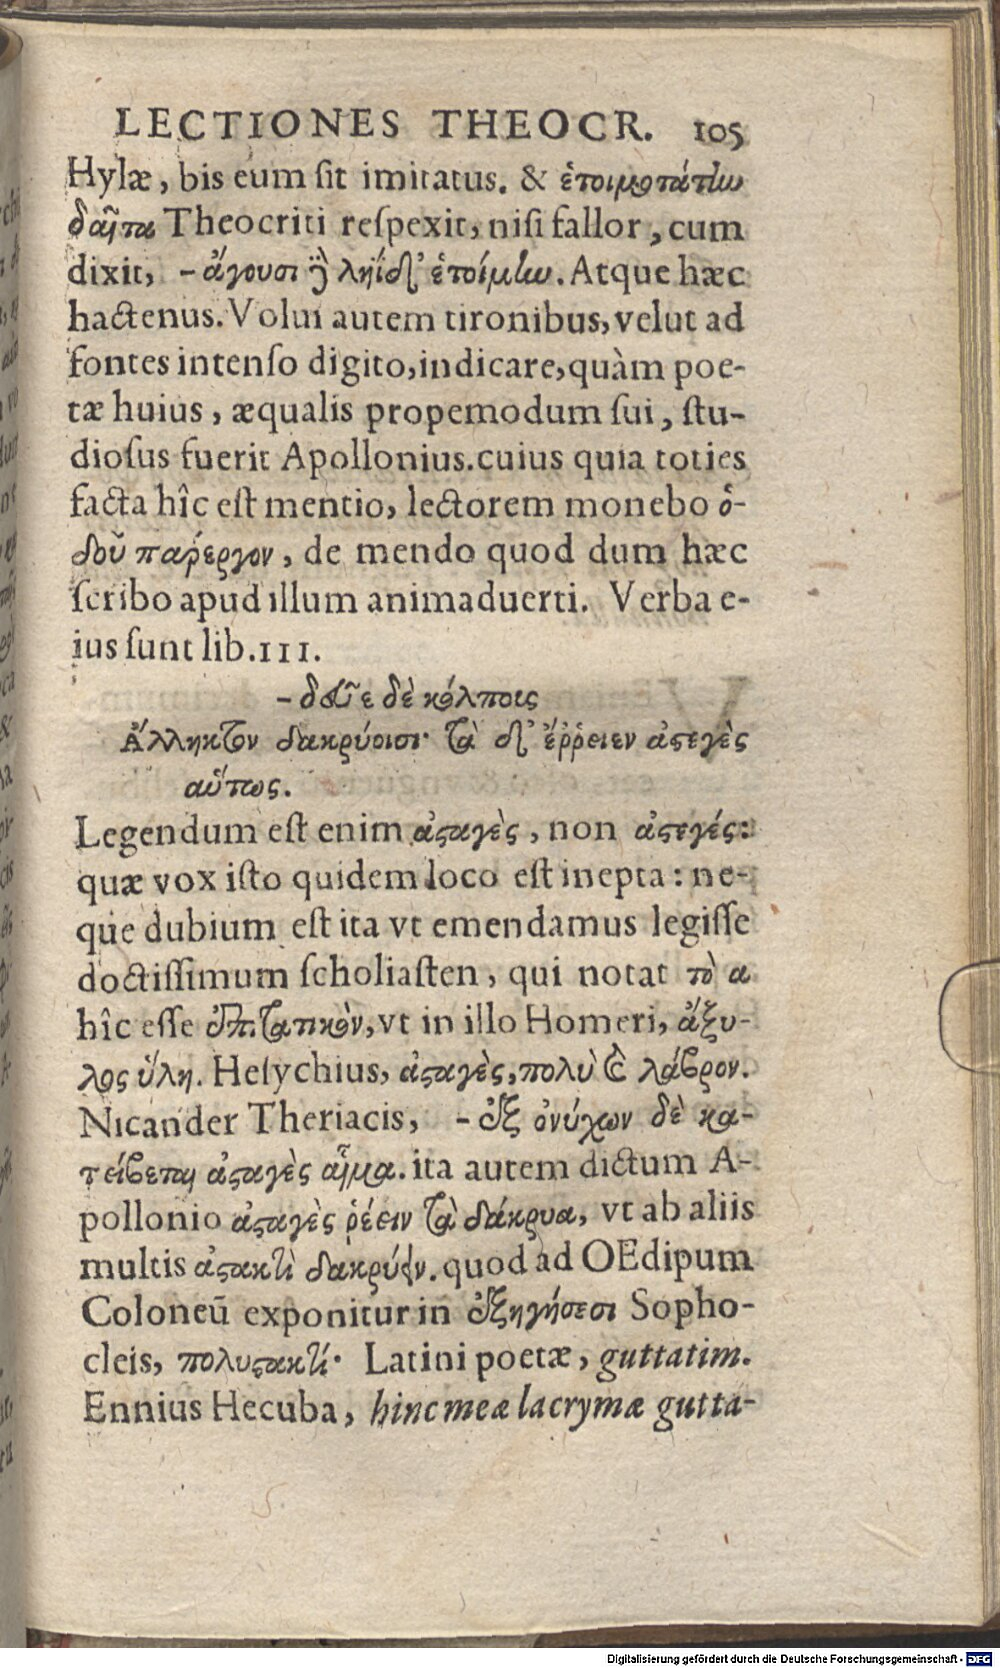 LECTIONES THEOCR. 105
Hylæ, bis eum sit imitatus. & ἑτοιμοτάτην
δαῖτα Theocriti respexit, nisi fallor, cum
dixit, - ἄγουσι ῂ ληΐδ' ἑτοίμην. Atque hæc
hactenus. Volui autem tironibus, velut ad
fontes intenso digito, indicare, quàm poe-
tæ huius, æqualis propemodum sui, stu-
diosus fuerit Apollonius. cuius quia toties
facta hîc est mentio, lectorem monebo ὁ-
δοῦ πάρεργον, de mendo quod dum hæc
scribo apud illum animaduerti. Verba e-
ius sunt lib. III.
- δεῦε δὲ κόλποις
Ἄλληκτον δακρύοισι· τὰ δ' ἔῤῥεεν ἀστεγὲς
αὔτως.
Legendum est enim ἀσταγὲς, non ἀστεγές:
quæ vox isto quidem loco est inepta: ne-
que dubium est ita vt emendamus legisse
doctissimum scholiasten, qui notat τὸ α
hîc esse ἐπιτατικὸν, vt in illo Homeri, ἄξυ-
λος ὕλη. Hesychius, ἀσταγὲς, πολὺ καὶ λάβρον.
Nicander Theriacis, - ἐξ ὀνύχων δὲ κα-
τείβεται ἀσταγὲς αἷμα. ita autem dictum A-
pollonio ἀσταγὲς ῥέειν τὰ δάκρυα, vt ab aliis
multis ἀστακτὶ δακρύειν. quod ad OEdipum
Coloneū exponitur in ἐξηγήσεσι Sopho-
cleis, πολυστακτί· Latini poetæ, guttatim.
Ennius Hecuba, hinc meæ lacrymæ gutta-
Digitalisierung gefördert durch die Deutsche Forschungsgemeinschaft - DFG